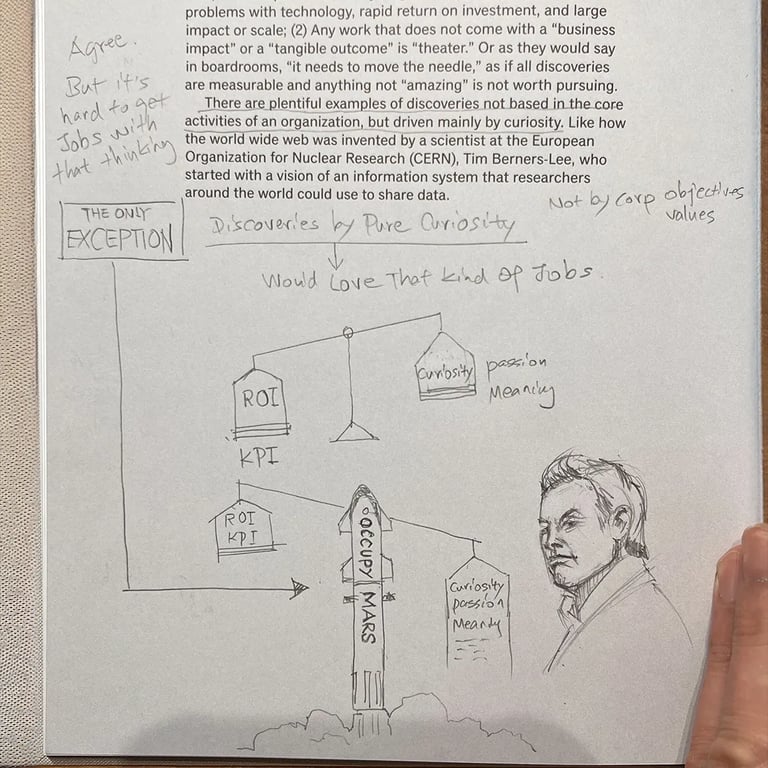 problems with technology, rapid return on investment, and large
impact or scale; (2) Any work that does not come with a “business
impact” or a “tangible outcome” is “theater.” Or as they would say
in boardrooms, “it needs to move the needle,” as if all discoveries
are measurable and anything not “amazing” is not worth pursuing.
There are plentiful examples of discoveries not based in the core
activities of an organization, but driven mainly by curiosity. Like how
the world wide web was invented by a scientist at the European
Organization for Nuclear Research (CERN), Tim Berners-Lee, who
started with a vision of an information system that researchers
around the world could use to share data.
Agree.
But it's
hard to get
Jobs with
that thinking
Not by corp objectives
values
THE ONLY
EXCEPTION
Discoveries by Pure Curiosity
Would Love That kind of Jobs.
ROI
KPI
Curiosity
passion
Meaning
ROI
KPI
OCCUPY MARS
Curiosity
passion
Meandy